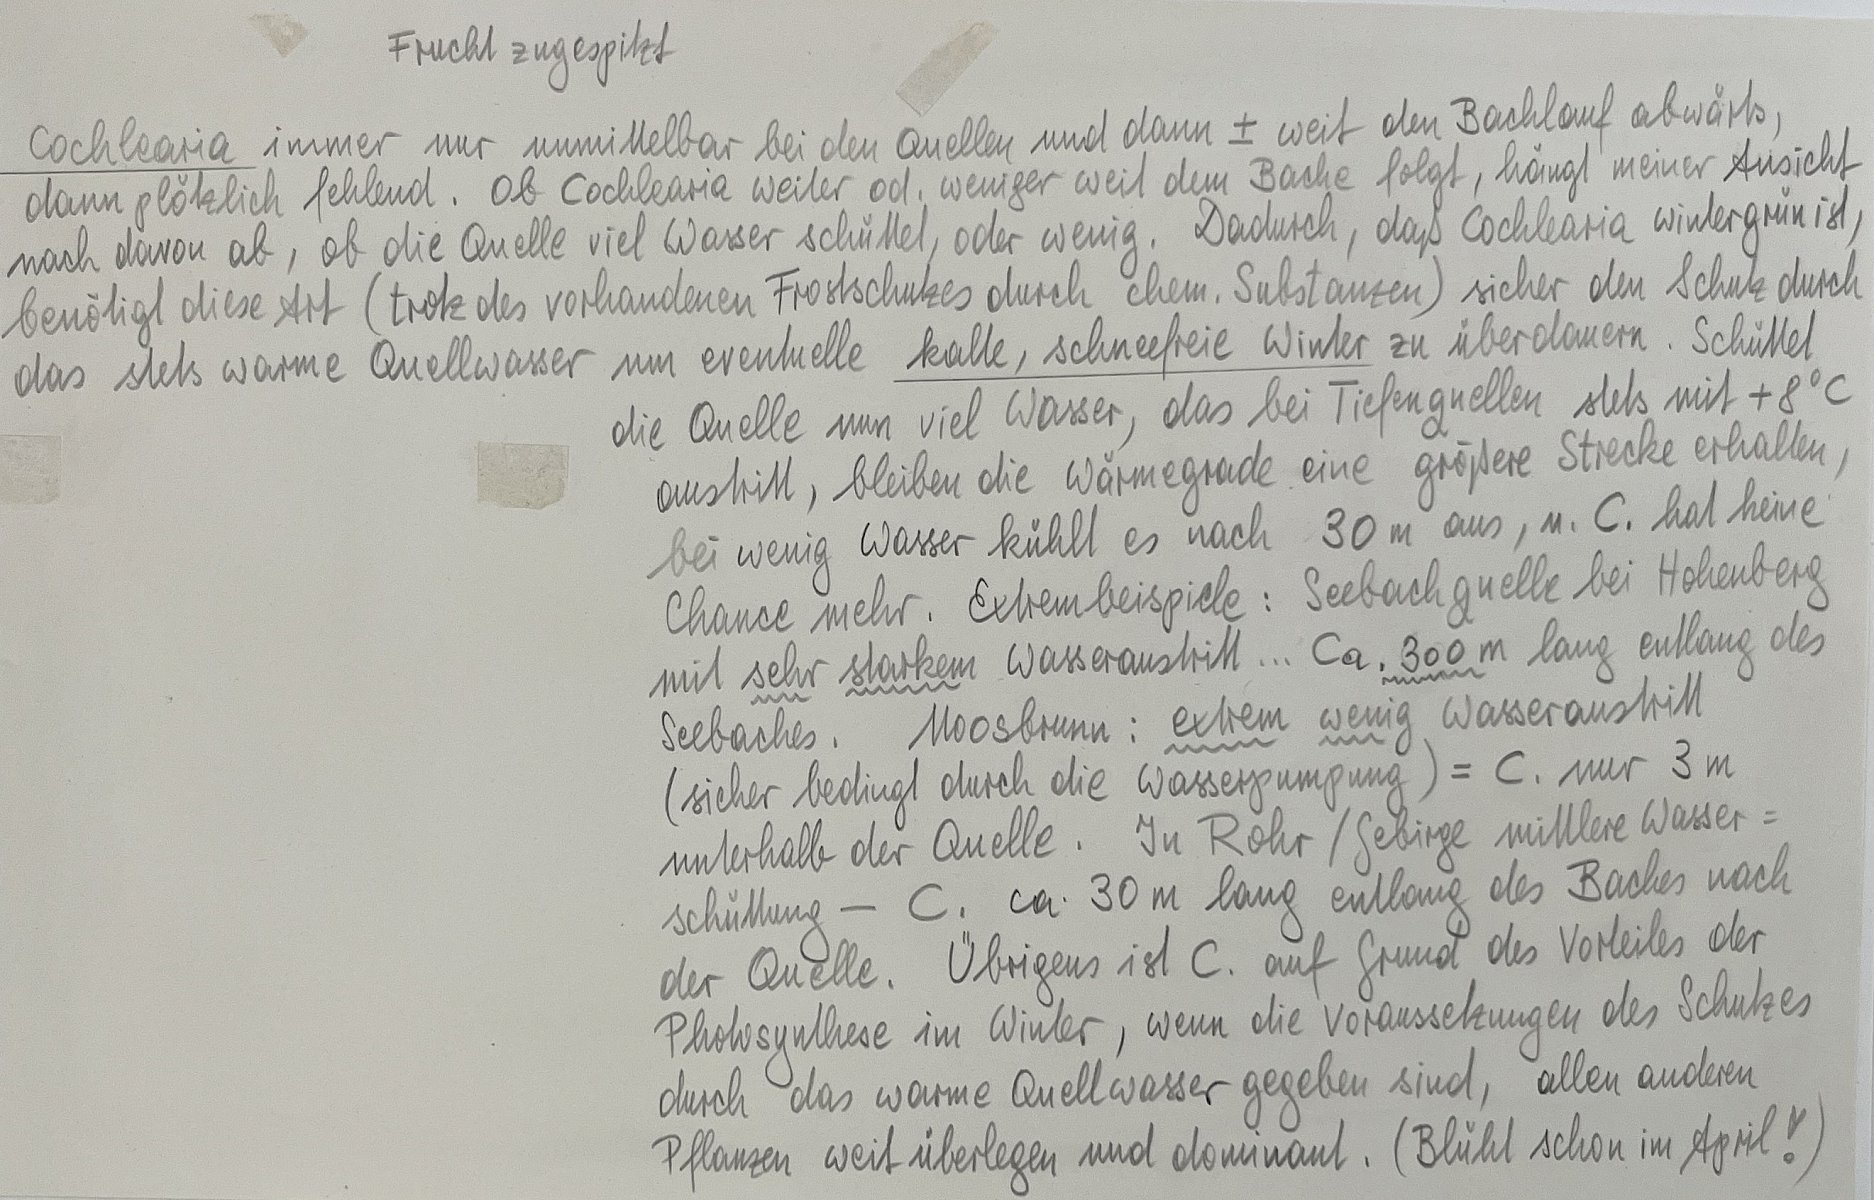 Frucht zugespitzt
Cochlearia immer nur unmittelbar bei den Quellen und dann ± weit den Bachlauf abwärts,
dann plötzlich fehlend. Ob Cochlearia weiter od. weniger weit dem Bache folgt, hängt meiner Ansicht
nach davon ab, ob die Quelle viel Wasser schüttet, oder wenig. Dadurch, daß Cochlearia wintergrün ist,
benötigt diese Art (trotz des vorhandenen Frostschutzes durch chem. Substanzen) sicher den Schutz durch
das stets warme Quellwasser um eventuelle kalte, schneefreie Winter zu überdauern. Schüttet
die Quelle nun viel Wasser, das bei Tiefenquellen stets mit +8°C
austritt, bleiben die Wärmegrade eine größere Strecke erhalten,
bei wenig Wasser kühlt es nach 30 m aus, u. C. hat keine
Chance mehr. Extrembeispiele: Seebachquelle bei Hohenberg
mit sehr starkem Wasseraustritt... Ca. 300 m lang entlang des
Seebaches. Moosbrunn: extrem wenig Wasseraustritt
(sicher bedingt durch die Wasserpumpung) = C. nur 3 m
unterhalb der Quelle. In Rohr/Gebirge mittlere Wasser=
schüttung — C. ca. 30 m lang entlang des Baches nach
der Quelle. Übrigens ist C. auf Grund des Vorteiles der
Photosynthese im Winter, wenn die Voraussetzungen des Schutzes
durch das warme Quellwasser gegeben sind, allen anderen
Pflanzen weit überlegen und dominant. (Blüht schon im April!)